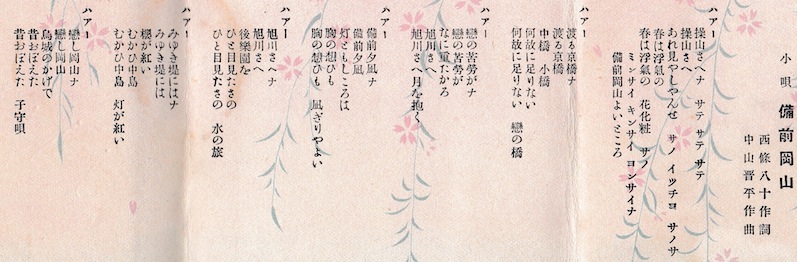 小唄 備前岡山
西條八十作詞
中山晋平作曲
ハアー
操山さへナ サテ サテ サテ
操山さへ
あれ見やしやんせ サノ イツチヨ サノサ
春は浮氣の 花化粧 サノ
春は浮氣の
ミンサイ キンサイ ヨンサイナ
備前岡山よいところ
ハアー
渡る京橋ナ
渡る京橋
何故に足りない
中橋 小橋
何故に足りない 戀の橋
ハアー
戀の苦勞がナ
戀の苦勞が
なに重たかろ
旭川さへ
旭川さへ 月を抱く
ハアー
備前夕凪ナ
備前夕凪
灯ともしころは
胸の想ひも
胸の想ひも 凪ぎりやよい
ハアー
旭川さへナ
旭川さへ
後樂園を
ひと目見たさの
ひと目見たさの 水の旅
ハアー
みゆき堤にはナ
みゆき堤には
櫻が紅い
むかひ中島
むかひ中島 灯が紅い
ハアー
戀し岡山ナ
戀し岡山
烏城のかげで
昔おぼえた
昔おぼえた 子守唄